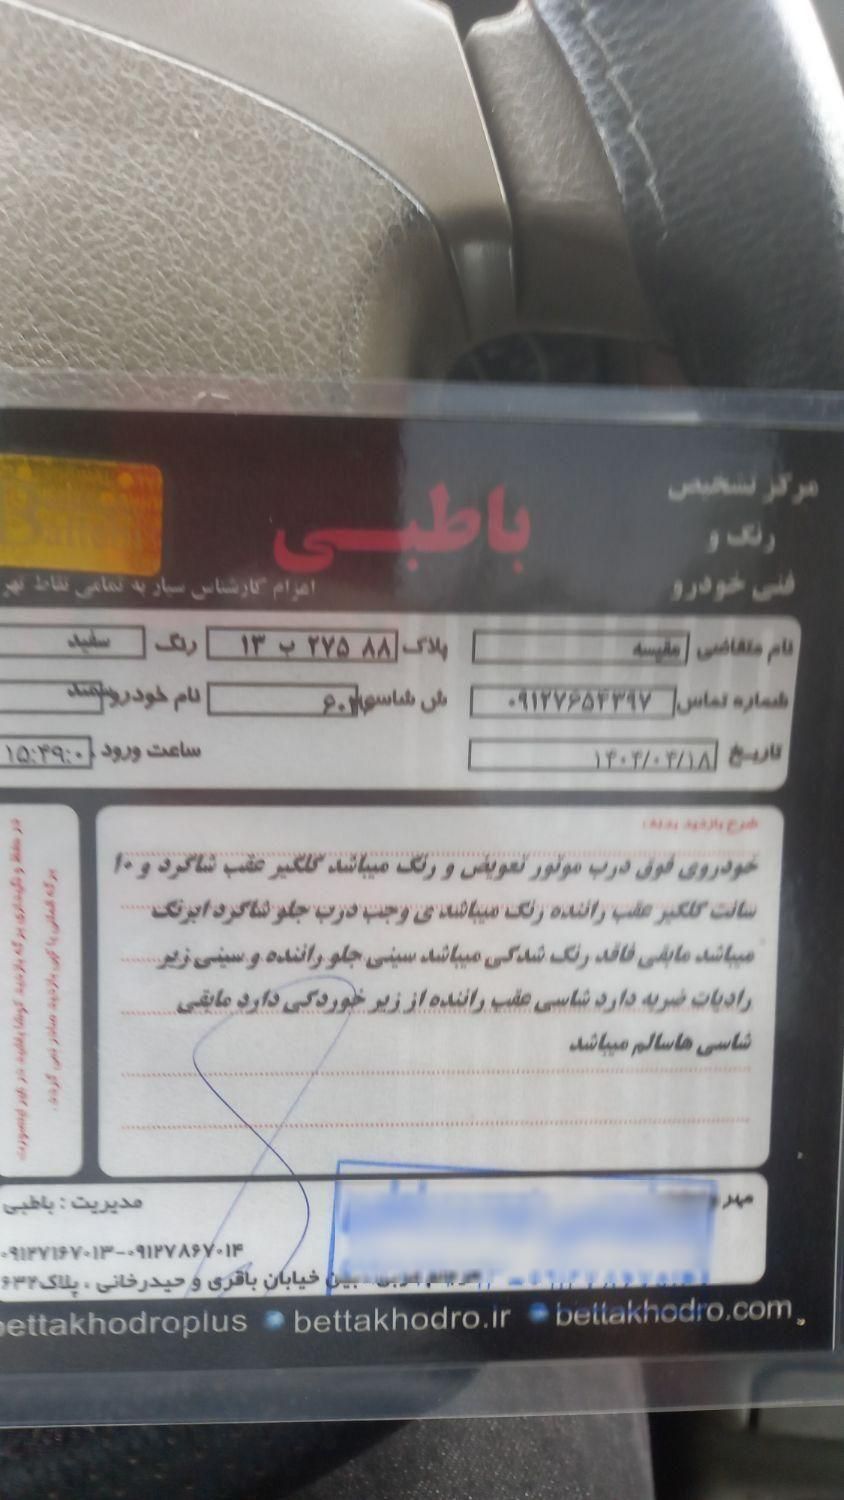 مرکز تشخیص
رنگ و
فنی خودرو
باطبی
اعزام کارشناس سیار به تمامی نقاط تهر
نام متقاضی مقیسه
پلاک ۸۸ ۲۷۵ ب ۱۳
رنگ سفید
شماره تماس ۰۹۱۲۷۶۵۴۳۹۷
ش شاسی
نام خودرو سمند
تاریخ ۱۴۰۴/۰۴/۱۸
ساعت ورود ۱۵:۴۹:۰
شرح بازدید بدنه:
خودروی فوق درب موتور تعویض و رنگ میباشد گلگیر عقب شاگرد و ۱۰
سانت گلگیر عقب راننده رنگ میباشد ی وجب درب جلو شاگرد ابرنگ
میباشد مابقی فاقد رنگ شدگی میباشد سینی جلو راننده و سینی زیر
رادیات ضربه دارد شاسی عقب راننده از زیر خوردگی دارد مابقی
شاسی هاسالم میباشد
مهر و
مدیریت : باطبی
۰۹۱۲۷۱۶۷۰۱۳-۰۹۱۲۷۸۶۷۰۱۴
بین خیابان باقری و حیدرخانی ، پلاک۶۳۲
bettakhodroplus bettakhodro.ir bettakhodro.com